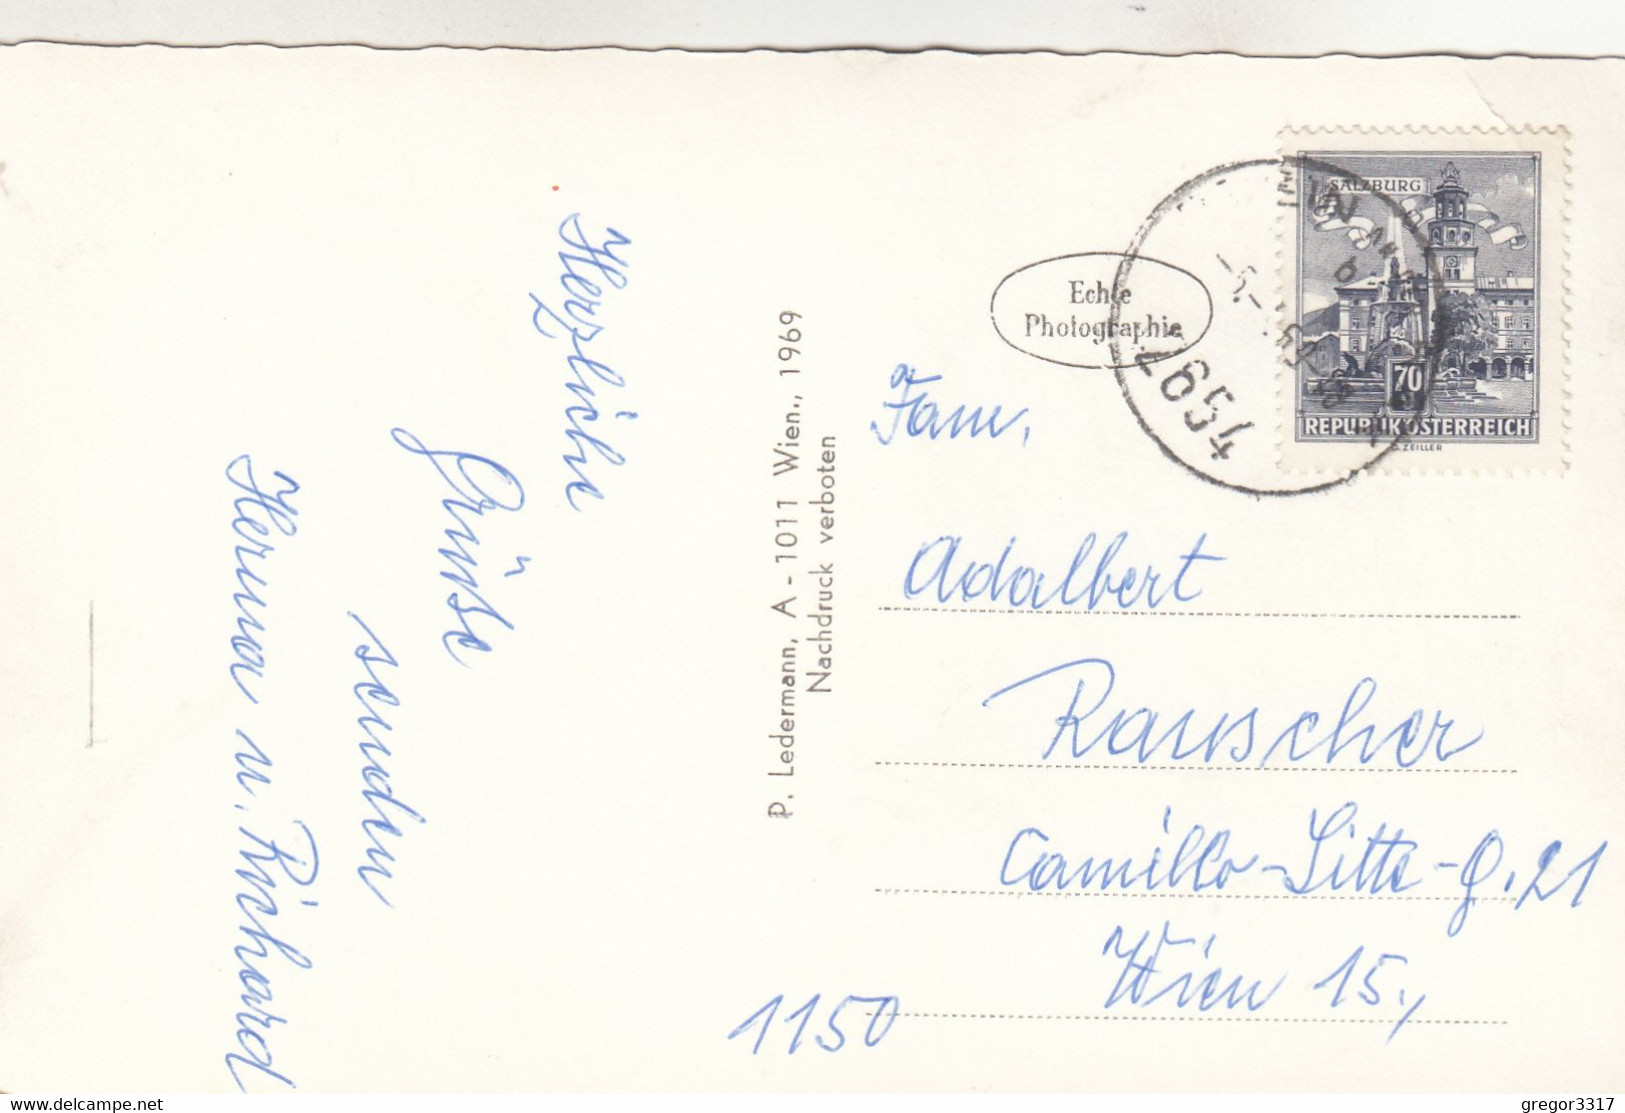 Herzliche
Grüße
senden
Herma u. Richard
P. Ledermann, A - 1011 Wien., 1969
Nachdruck verboten
Echte
Photographie
SALZBURG
70
REPUBLIK ÖSTERREICH
G. ZEILLER
4597
Fam.
Adalbert
Rauscher
Camillo-Sitte-G. 21
Wien 15.,
1150
gregor3317